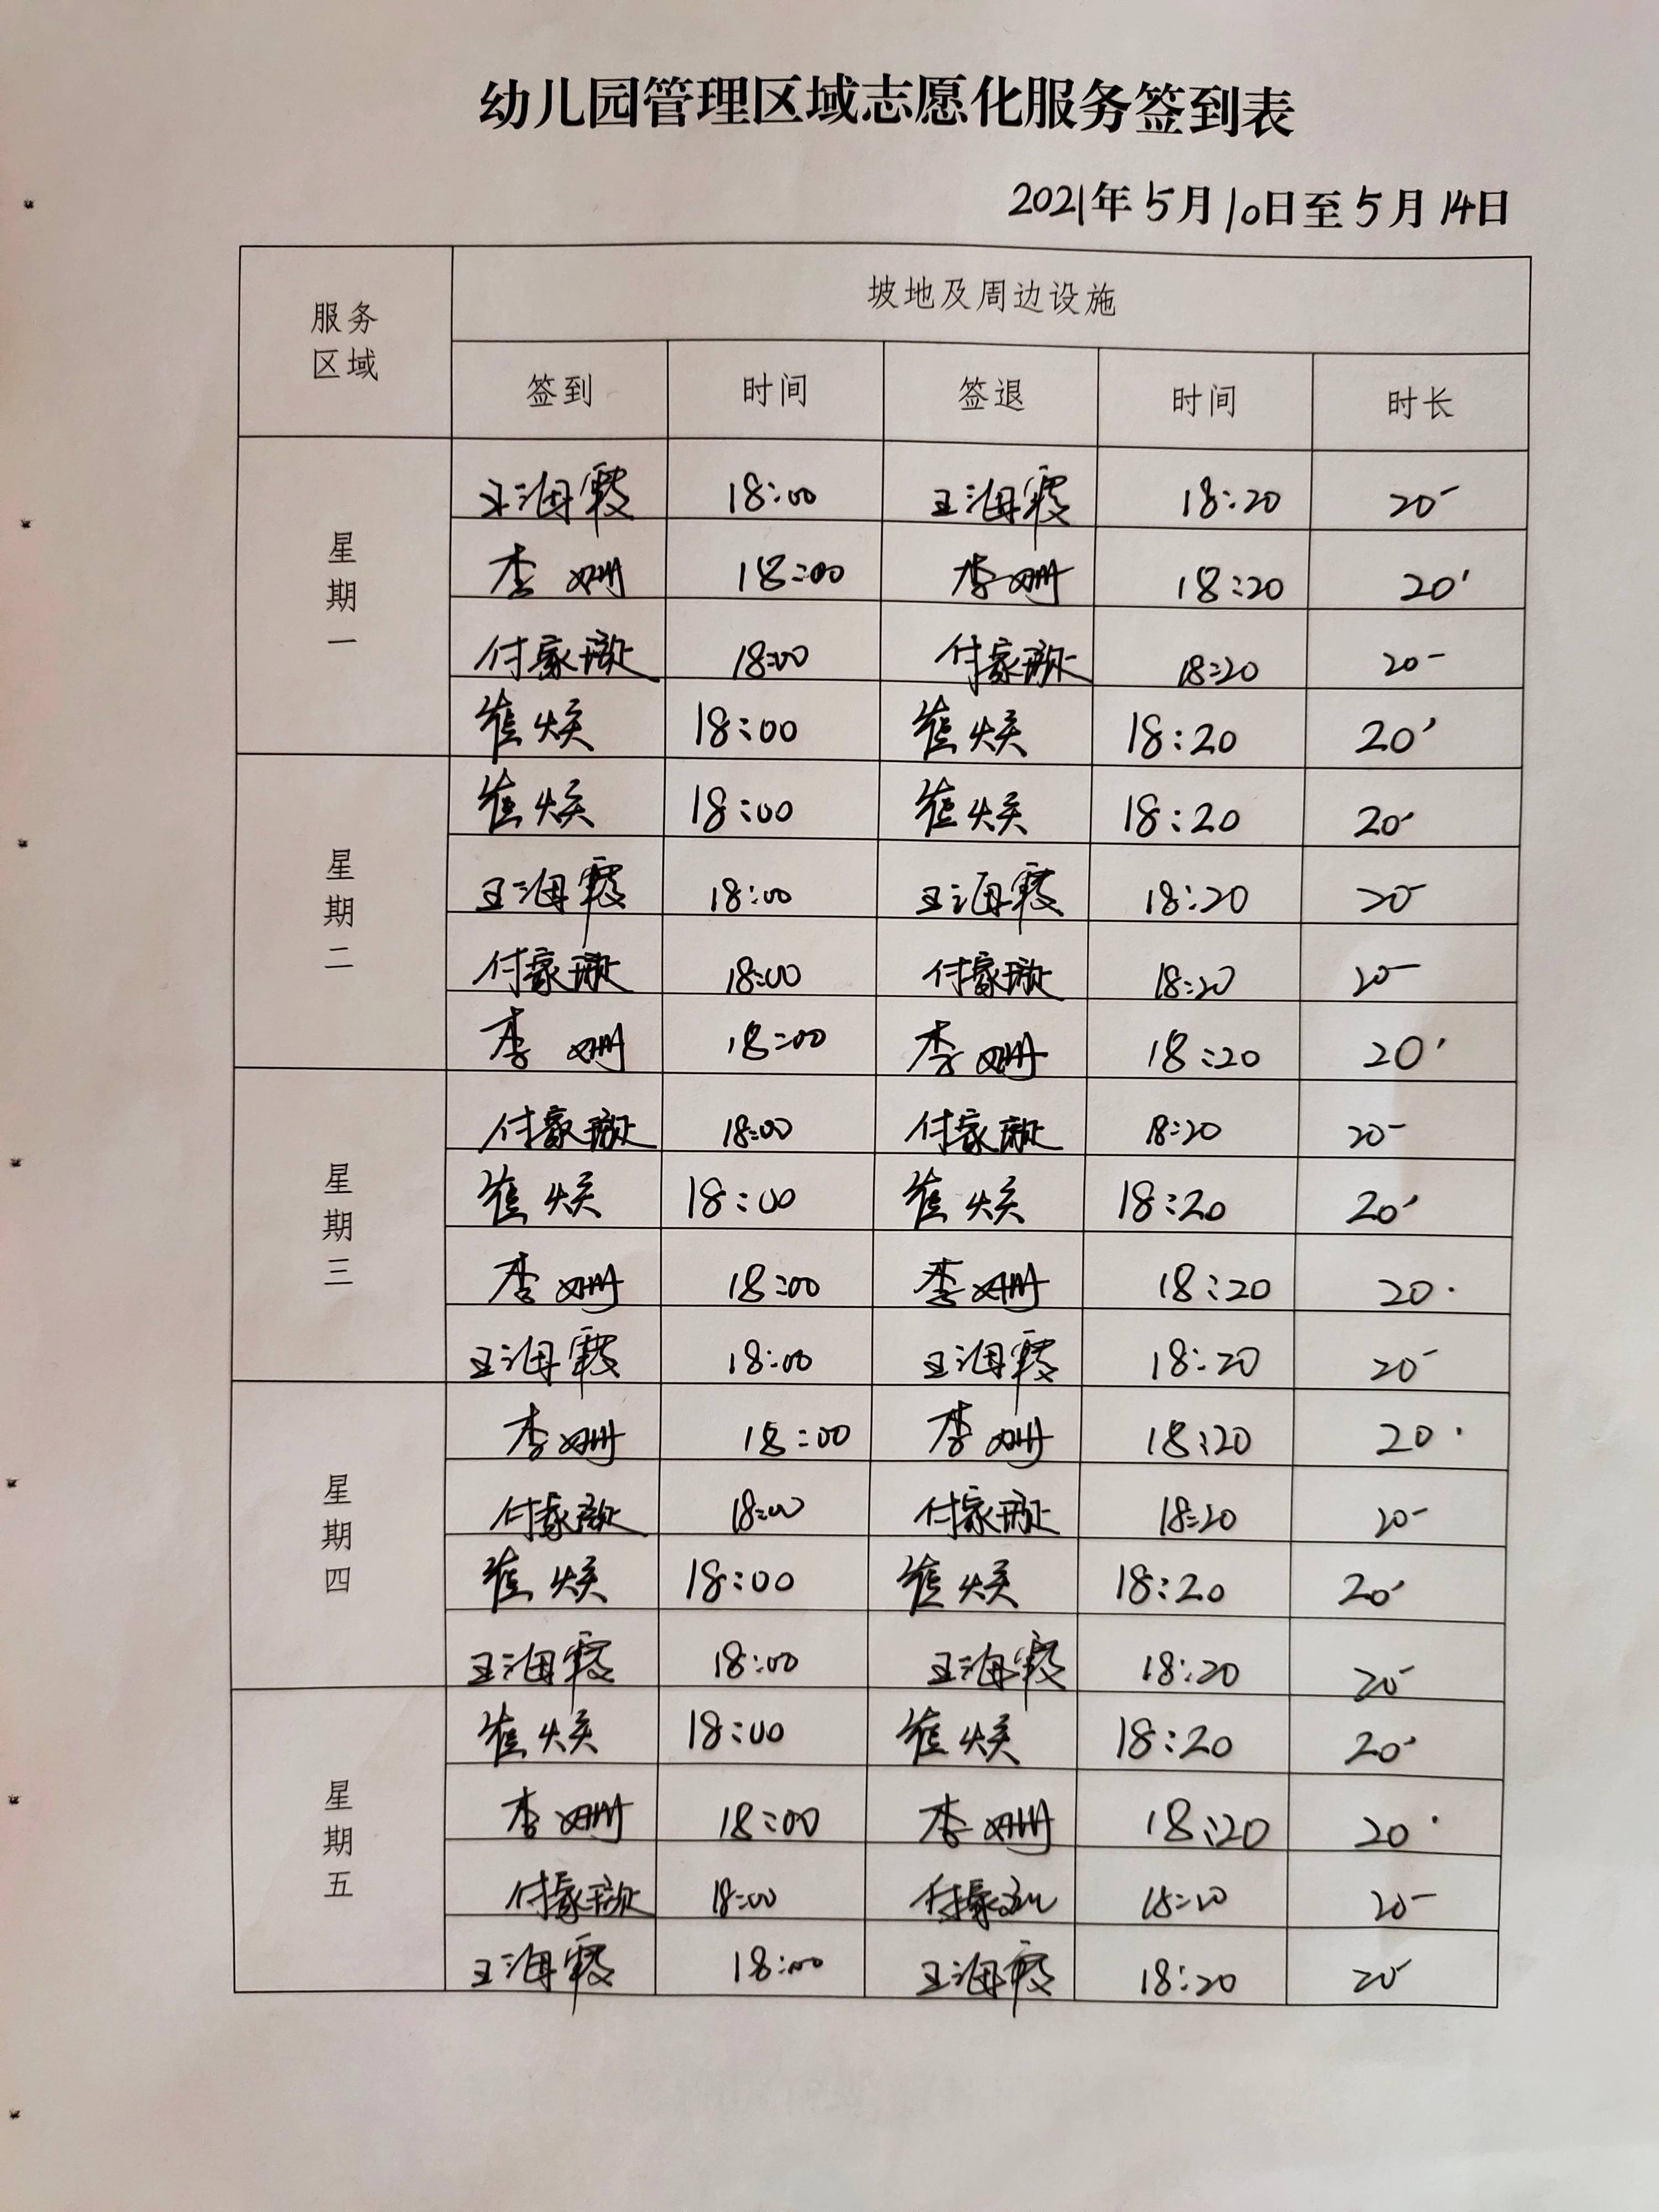 幼儿园管理区域志愿化服务签到表
2021年5月10日至5月14日
服务区域 坡地及周边设施
签到 时间 签退 时间 时长
星期一
王海霞 18:00 王海霞 18:20 20-
李姗 18:00 李姗 18:20 20'
付家 18:00 付家 18:20 20-
崔焕 18:00 崔焕 18:20 20'
星期二
崔焕 18:00 崔焕 18:20 20'
王海霞 18:00 王海霞 18:20 20-
付家 18:00 付家 18:20 20-
李姗 18:00 李姗 18:20 20'
星期三
付家 18:00 付家 18:20 20-
崔焕 18:00 崔焕 18:20 20'
李姗 18:00 李姗 18:20 20'
王海霞 18:00 王海霞 18:20 20-
星期四
李姗 18:00 李姗 18:20 20'
付家 18:00 付家 18:20 20-
崔焕 18:00 崔焕 18:20 20'
王海霞 18:00 王海霞 18:20 20-
星期五
崔焕 18:00 崔焕 18:20 20'
李姗 18:00 李姗 18:20 20'
付家 18:00 付家 18:20 20-
王海霞 18:00 王海霞 18:20 20-